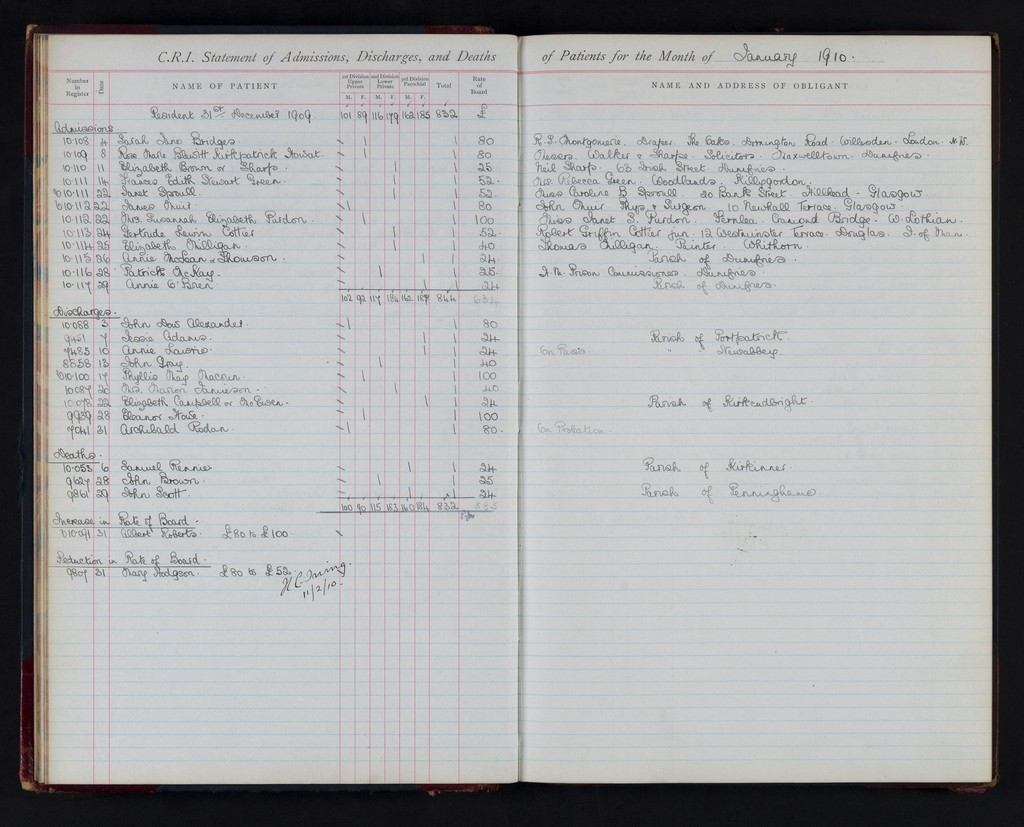 C.R.I. Statement of Admissions, Discharges, and Deaths of Patients for the Month of January 1910.
Number in Register Date NAME OF PATIENT 1st Division Upper Private M. F. 2nd Division Lower Private M. F. 3rd Division Parochial M. F. Total Rate of Board NAME AND ADDRESS OF OBLIGANT
Resident 31st December 1909 101 89 116 179 162 185 832 £
Admissions.
10108 4 Sarah Jane Bridges 80 R.S. Montgomerie. Draper. The Oaks. Road. Willesden. London. N.W.
10109 8 Rose Marie Blewitt Kirkpatrick Howat. 80 Messrs. Walker & Sharpe. Solicitors. Maxwelltown. Dumfries.
10110 11 Elizabeth Brown or Sharp. 25 Neil Sharp. 63 Irish Street. Dumfries.
10111 14 Frances Edith Stewart Green. 52. Mrs. Rebecca Green. Woodlands. Killygordon.
10111 22 Janet Sproull 52 Miss Caroline B. Sproull. 20 Bank Street. Hillhead. Glasgow
10112 22 James Muir. 80 John Muir Phys & Surgeon. 10 Newhall Terrace. Glasgow.
10112 22 Mrs. Susannah Elizabeth Purdon. 100 Miss Janet S. Purdon. Fernlea. Cramond Bridge. W. Lothian.
10113 24 Gertrude Lewin Cottier 52. Robert Griffin Cottier jun. 12 Westminster Terrace. Douglas. I. of Man.
10114 25 Elizabeth Milligan. 40 Thomas Milligan. Painter. Whithorn.
10115 26 Annie McLean or Thomson. 24 Parish of Dumfries.
10116 28 Patrick McKay. 25. H.M. Prison Commissioners. Dumfries.
10117 29 Annie O'Brien 24 Parish of Dumfries.
102 92 117 184 162 187 844 634
Discharges.
10088 3 John Dow Alexander 80
9451 7 Jessie Adams. 24 Parish of Portpatrick.
7485 10 Annie Lawrie. 24 On Pass. " " Newabbey.
8858 13 John Gray. 40
10100 17 Phyllis May Macrun. 100
10087 20 Mrs. Marion Jamieson. 40
10078 22 Elizabeth Campbell or McEwen. 24 Parish of Kirkcudbright.
9939 28 Eleanor Howe. 100
7041 31 Archibald Rodan. 80. On Probation.
Deaths.
10053 6 Samuel Rennie 24 Parish of Kirkinner.
9627 28 John Brown. 25
9861 29 John Scott. 24 Parish of Penninghame
100 90 115 183 160 184 832 585
Increase in Rate of Board.
10091 31 Albert Roberts. £80 to £100.
Reduction in Rate of Board.
9807 31 Mary Hodgson. £80 to £52.
11/2/10.